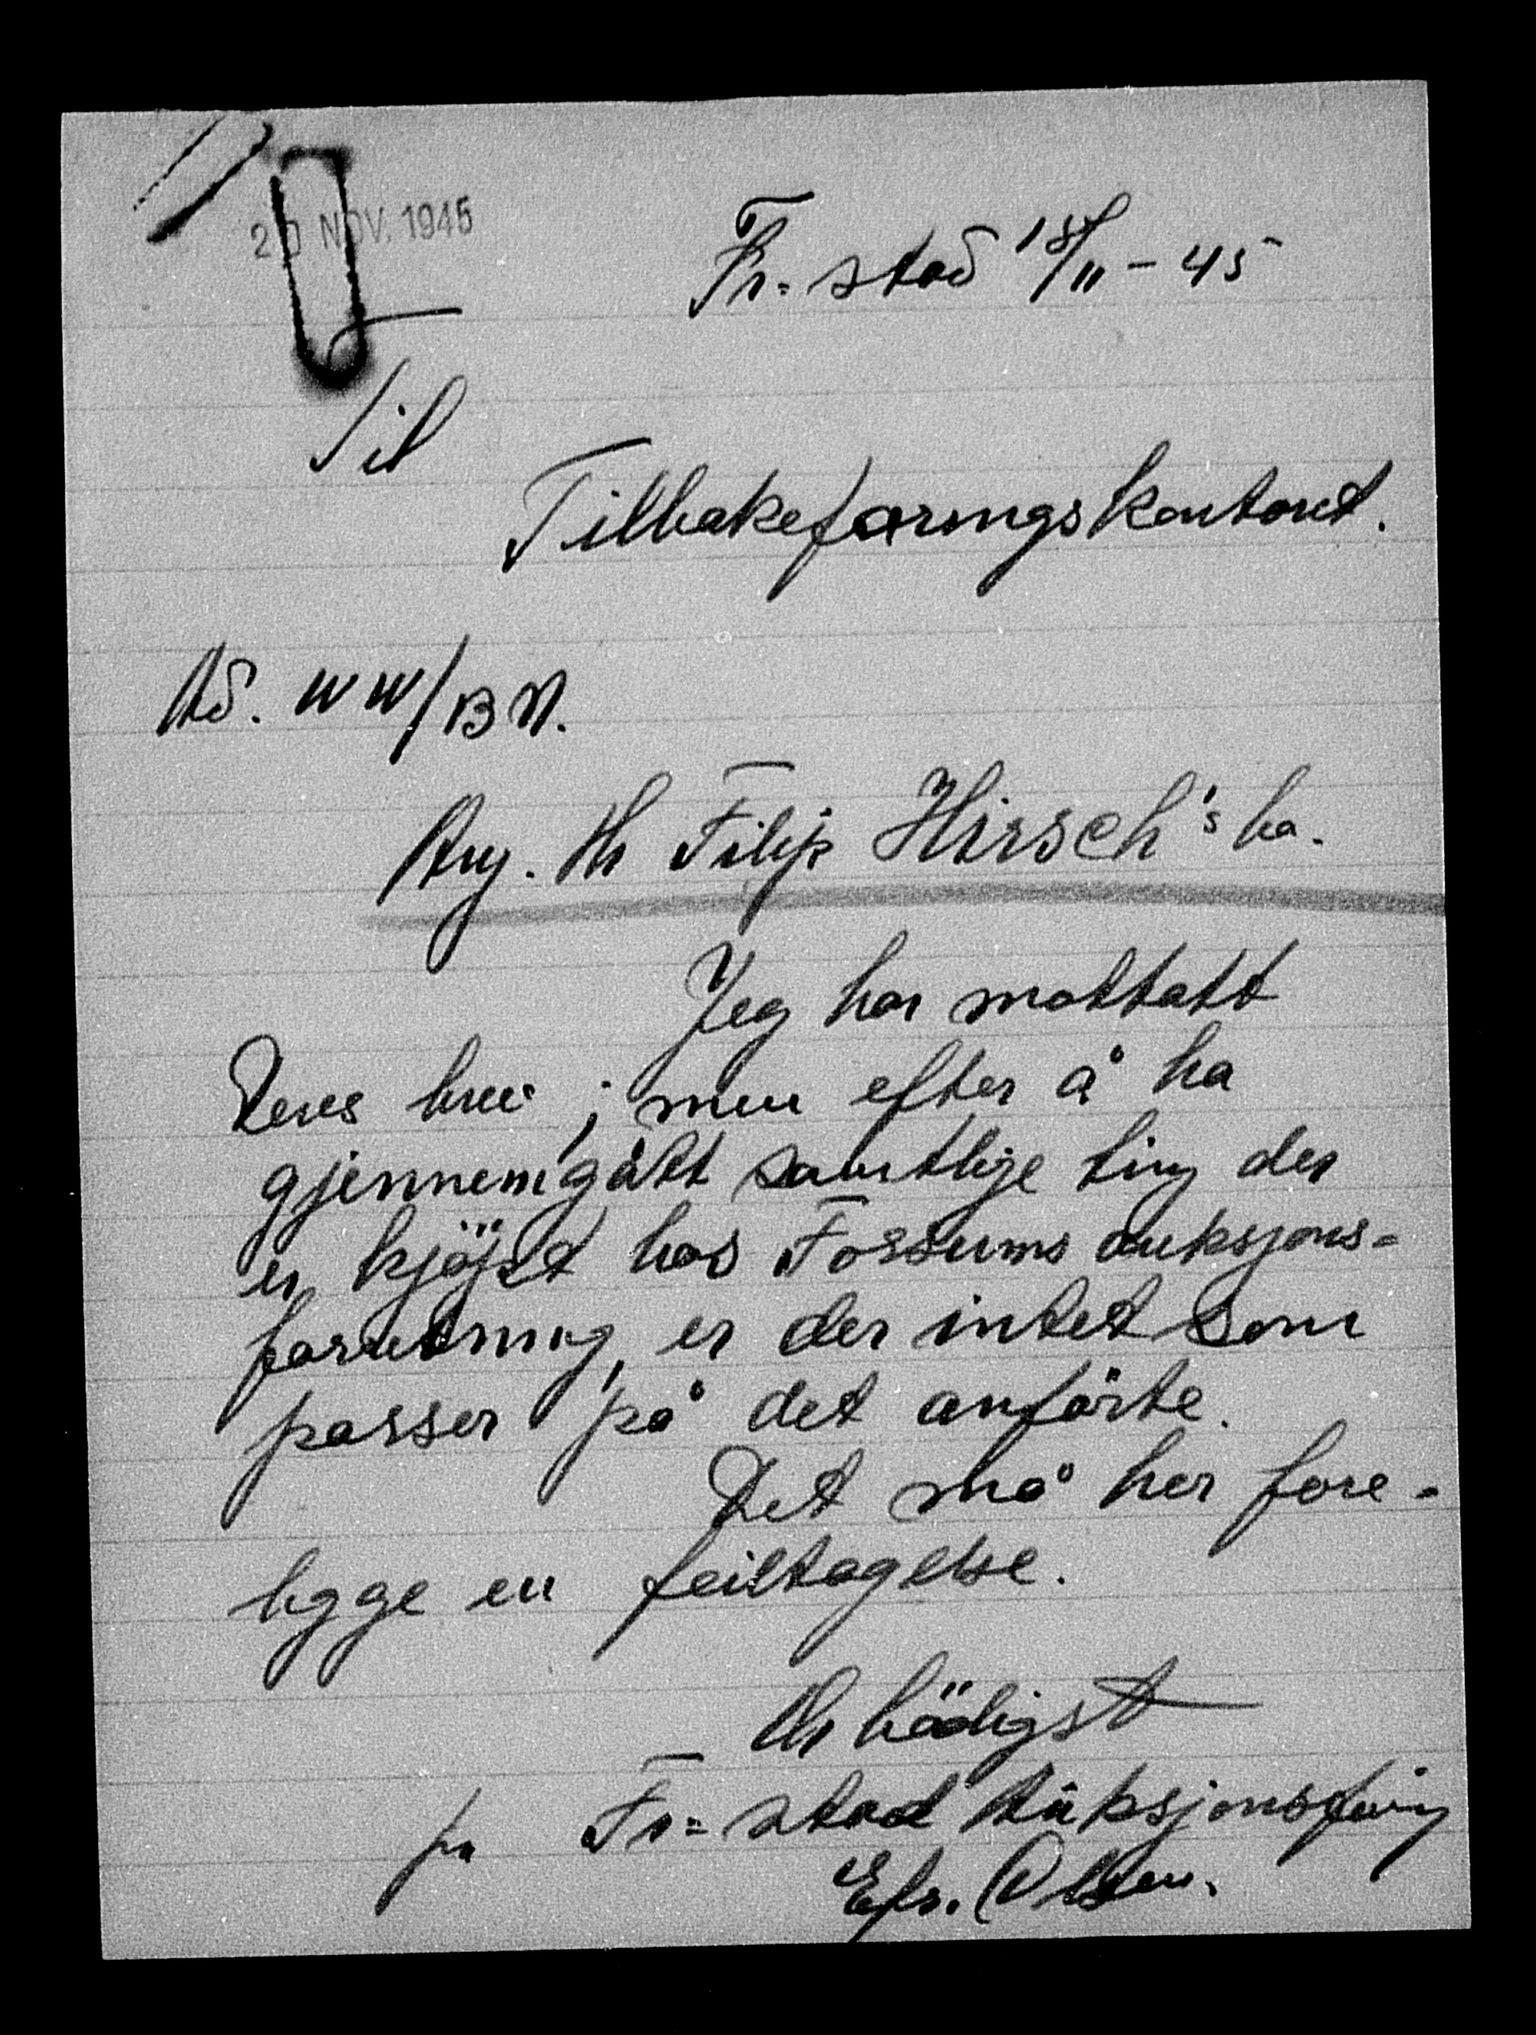 20 NOV. 1945
Fr=stad 18/11 - 45
Til
Tilbakeføringskontoret.
Ad. WW/BN.
Ang. Hr Filip Hirsch's bo.
Jeg har mottatt
Deres brev ; men efter å ha
gjennemgått samtlige ting der
er kjöpt hos Fossums auksjons=
foretning, er der intet som
passer på det anförte.
Det må her fore=
ligge en feiltagelse.
Ærbödigst
pr Fr=stad Auksjonsforr.
Efr. Olsen.